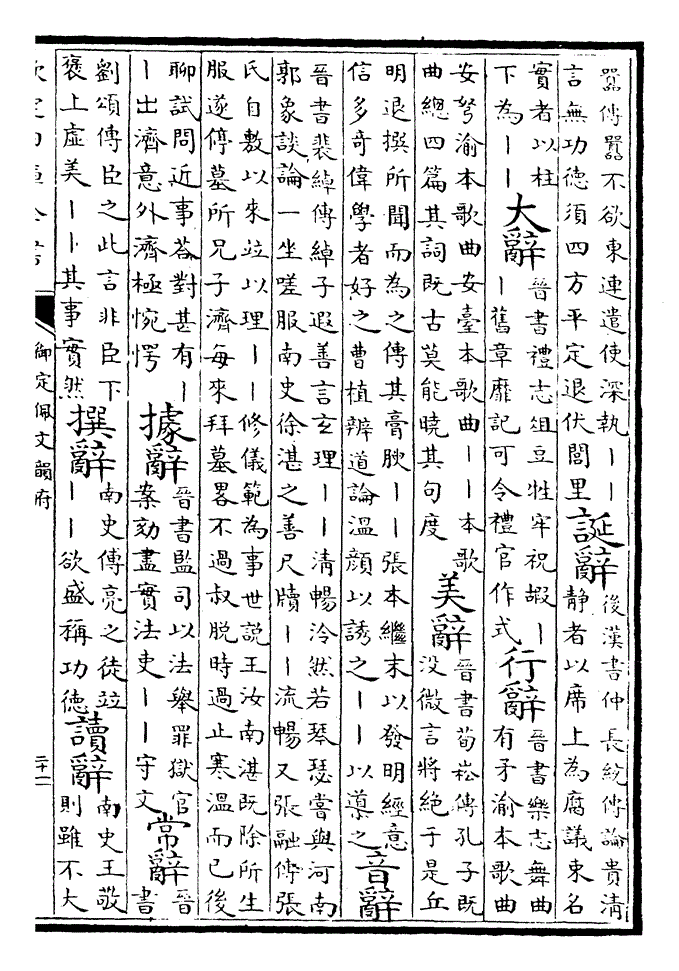 囂傳囂不欲東連遣使深執｜｜
言無功德須四方平定退伏閭里
誕辭
後漢書仲長統傳論貴清
静者以席上為腐議束名
實者以柱
下為｜｜
大辭
晉書禮志俎豆牲牢祝嘏｜
｜舊章靡記可令禮官作式
行辭
晉書樂志舞曲
有矛渝本歌曲
安弩渝本歌曲安臺本歌曲｜｜本歌
曲總四篇其詞既古莫能曉其句度
美辭
晉書荀崧傳孔子既
没微言將絶于是丘
明退撰所聞而為之傳其膏腴｜｜張本繼末以發明經意
信多奇偉學者好之曹植辨道論溫顔以誘之｜｜以導之
音辭
晉書裴綽傳綽子遐善言玄理｜｜清暢泠然若琴瑟嘗與河南
郭象談論一坐嗟服南史徐湛之善尺牘｜｜流暢又張融傳張
氏自敷以來竝以理｜｜修儀範為事世說王汝南湛既除所生
服遂停墓所兄子濟每來拜墓畧不過叔脱時過止寒溫而已後
聊試問近事荅對甚有｜
｜出濟意外濟極惋愕
據辭
晉書監司以法舉罪獄官
案劾盡實法吏｜｜守文
常辭
晉
書
劉頌傳臣之此言非臣下
褒上虛美｜｜其事實然
撰辭
南史傅亮之徒竝
｜｜欲盛稱功德
讀辭
南史王敬
則雖不大
欽定四庫全書
御定佩文韻府
二十二